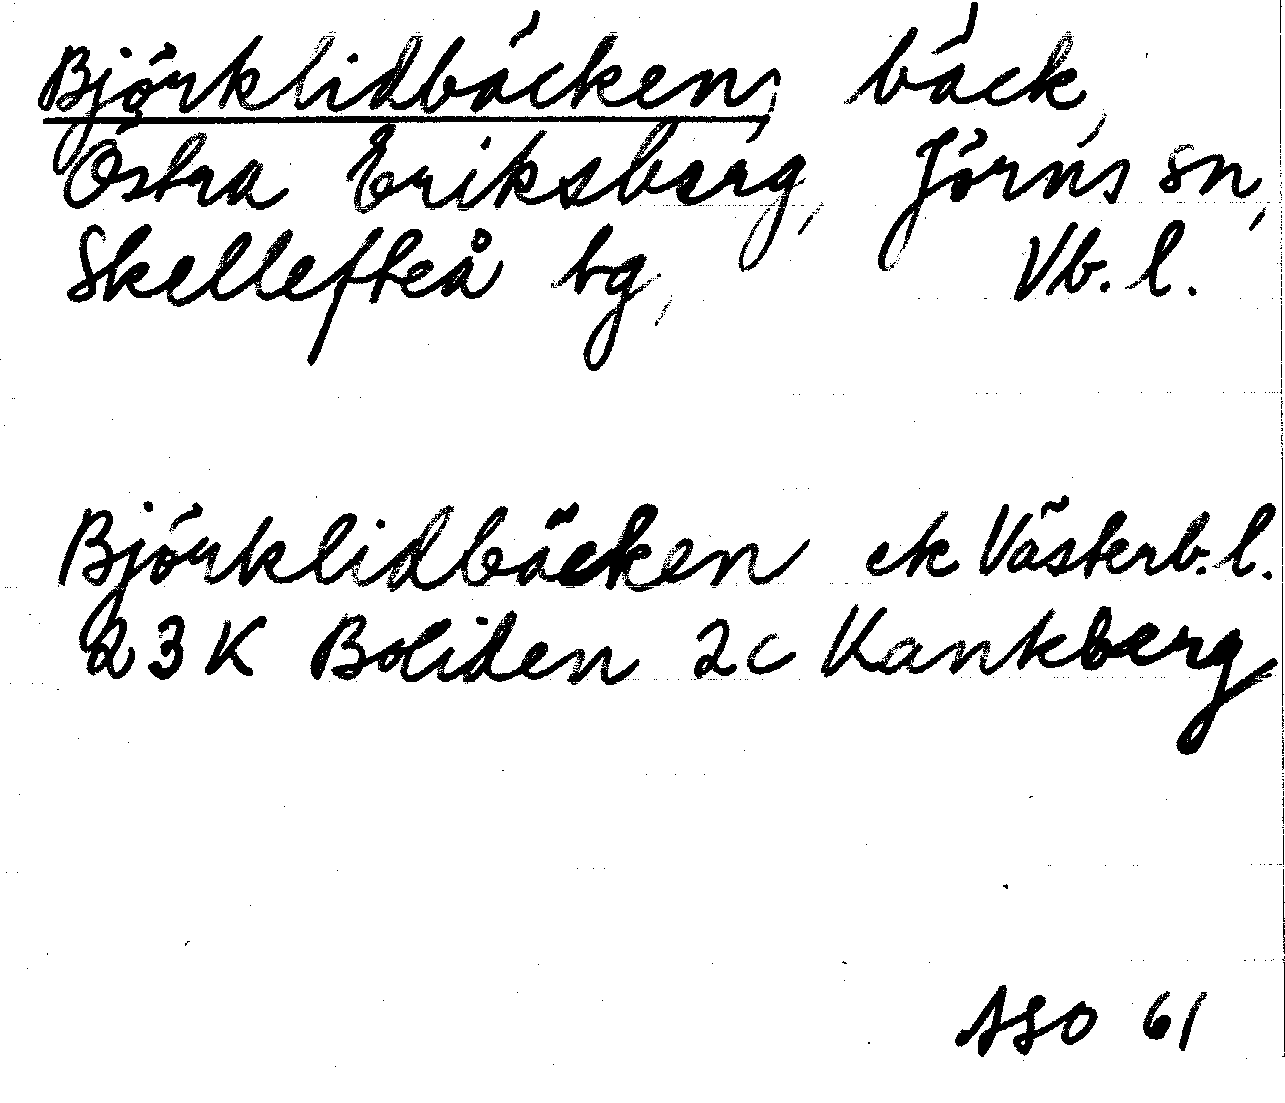 Björklidbäcken, bäck,
Östra Eriksberg, Jörns sn,
Skellefteå bg, Vb. l.
Björklidbäcken ek Västerb. l.
23 K Boliden 2c Kankberg
ASO 61